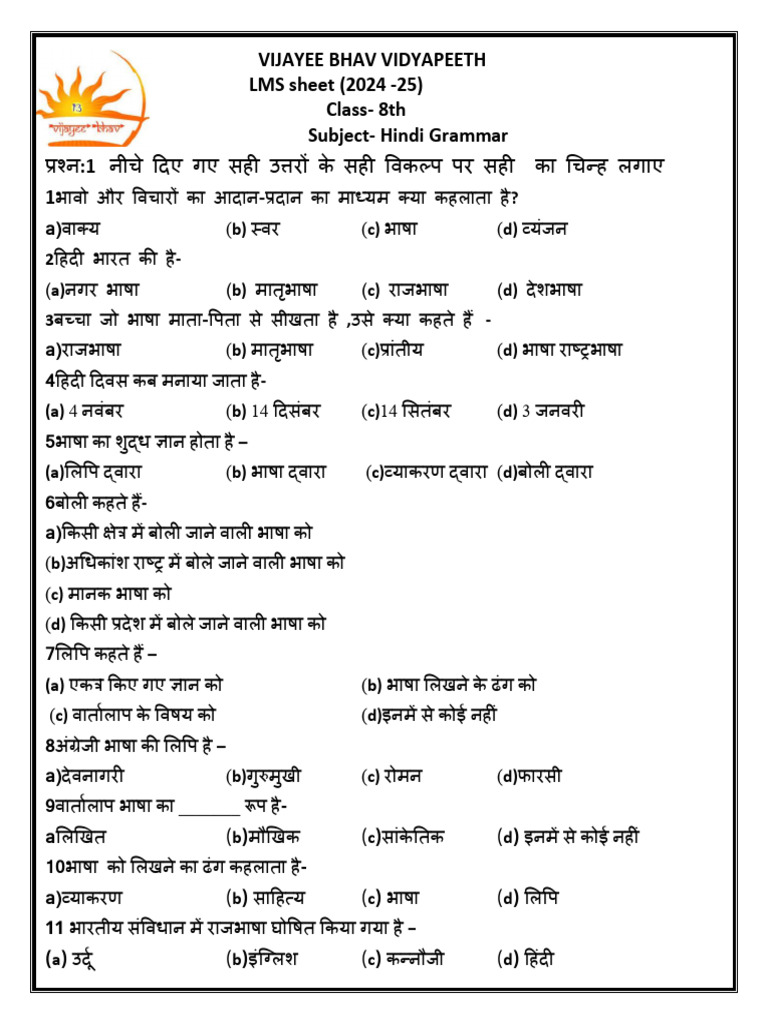 VIJAYEE BHAV VIDYAPEETH
LMS sheet (2024 -25)
Class- 8th
Subject- Hindi Grammar
"vijayee" "bhav"
प्रश्न:1 नीचे दिए गए सही उत्तरों के सही विकल्प पर सही का चिन्ह लगाए
1भावो और विचारों का आदान-प्रदान का माध्यम क्या कहलाता है?
a)वाक्य (b) स्वर (c) भाषा (d) व्यंजन
2हिदी भारत की है-
(a)नगर भाषा (b) मातृभाषा (c) राजभाषा (d) देशभाषा
3बच्चा जो भाषा माता-पिता से सीखता है ,उसे क्या कहते हैं -
a)राजभाषा (b) मातृभाषा (c)प्रांतीय (d) भाषा राष्ट्रभाषा
4हिदी दिवस कब मनाया जाता है-
(a) 4 नवंबर (b) 14 दिसंबर (c)14 सितंबर (d) 3 जनवरी
5भाषा का शुद्ध ज्ञान होता है –
(a)लिपि द्वारा (b) भाषा द्वारा (c)व्याकरण द्वारा (d)बोली द्वारा
6बोली कहते हैं-
a)किसी क्षेत्र में बोली जाने वाली भाषा को
(b)अधिकांश राष्ट्र में बोले जाने वाली भाषा को
(c) मानक भाषा को
(d) किसी प्रदेश में बोले जाने वाली भाषा को
7लिपि कहते हैं –
(a) एकत्र किए गए ज्ञान को (b) भाषा लिखने के ढंग को
(c) वार्तालाप के विषय को (d)इनमें से कोई नहीं
8अंग्रेजी भाषा की लिपि है –
a)देवनागरी (b)गुरुमुखी (c) रोमन (d)फारसी
9वार्तालाप भाषा का _______ रूप है-
aलिखित (b)मौखिक (c)सांकेतिक (d) इनमें से कोई नहीं
10भाषा को लिखने का ढंग कहलाता है-
a)व्याकरण (b) साहित्य (c) भाषा (d) लिपि
11 भारतीय संविधान में राजभाषा घोषित किया गया है –
(a) उर्दू (b)इंग्लिश (c) कन्नौजी (d) हिंदी